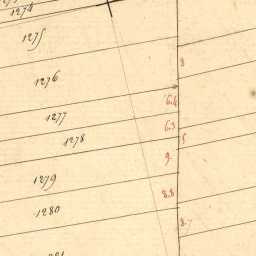 1274
1275
8
1276
6.4
1277
6.3
1278
5
9.
1279
8.8
1280
8.7